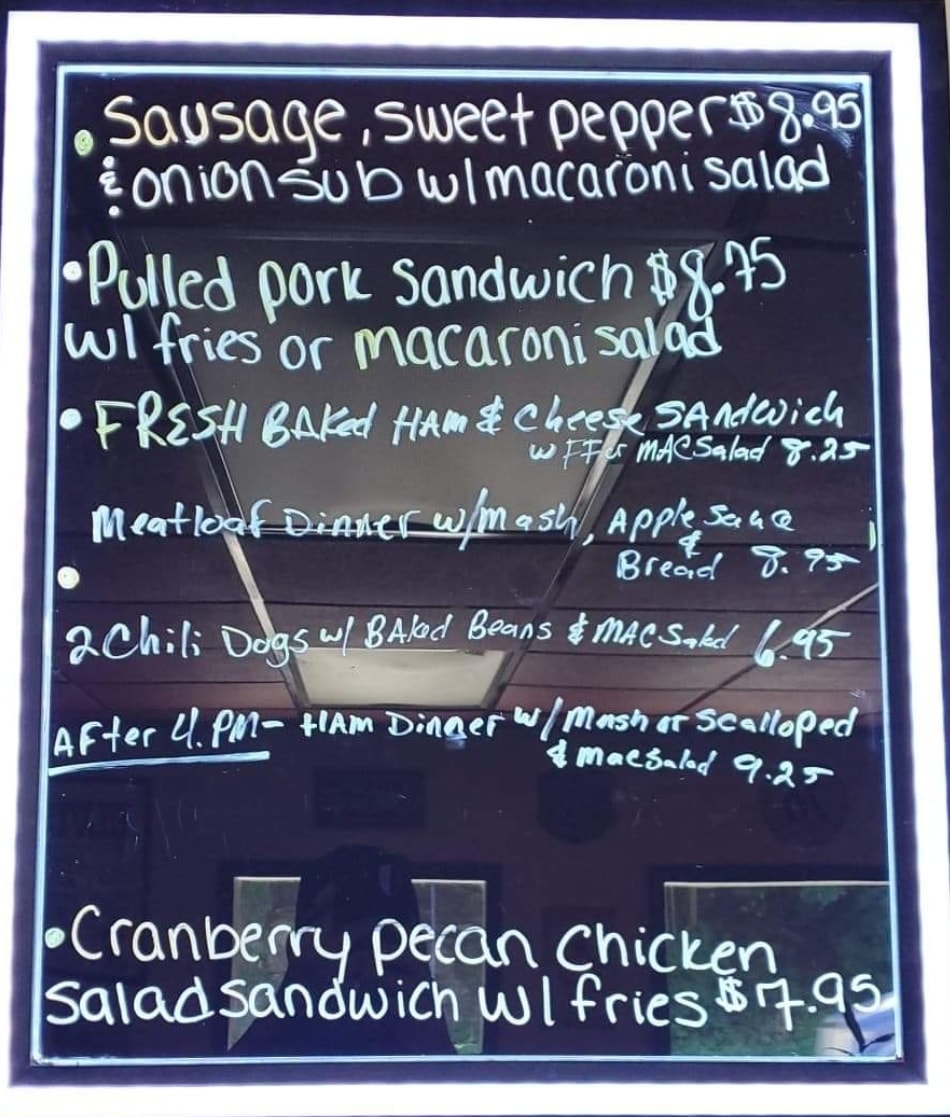 • Sausage, sweet pepper $8.95
& onion sub w/ macaroni salad
• Pulled pork sandwich $8.75
w/ fries or macaroni salad
• FRESH BAKed HAM & Cheese SANdwich
w FF or MAC Salad 8.25
Meatloaf Dinner w/mash, Apple Sauce
&
Bread 8.95
•
2 Chili Dogs w/ BAKed Beans & MAC Salad 6.95
AFter 4. PM - HAM Dinner w/ Mash or Scalloped
& Mac Salad 9.25
• Cranberry pecan chicken
salad sandwich w/ fries $7.95